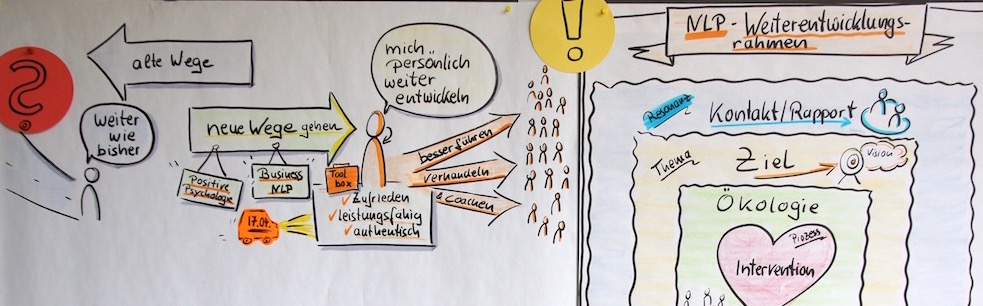 ?
alte Wege
Weiter
wie
bisher
neue Wege gehen
Positive
Psychologie
Business
NLP
17.04.
mich
persönlich
weiter
entwickeln
Tool
box
✓ Zufrieden
✓ leistungsfähig
✓ authentisch
besser führen
verhandeln
& Coachen
!
NLP - Weiterentwicklungs-
rahmen
Resonanz
Kontakt/Rapport
Thema
Ziel
Vision
Ökologie
Prozess
Intervention